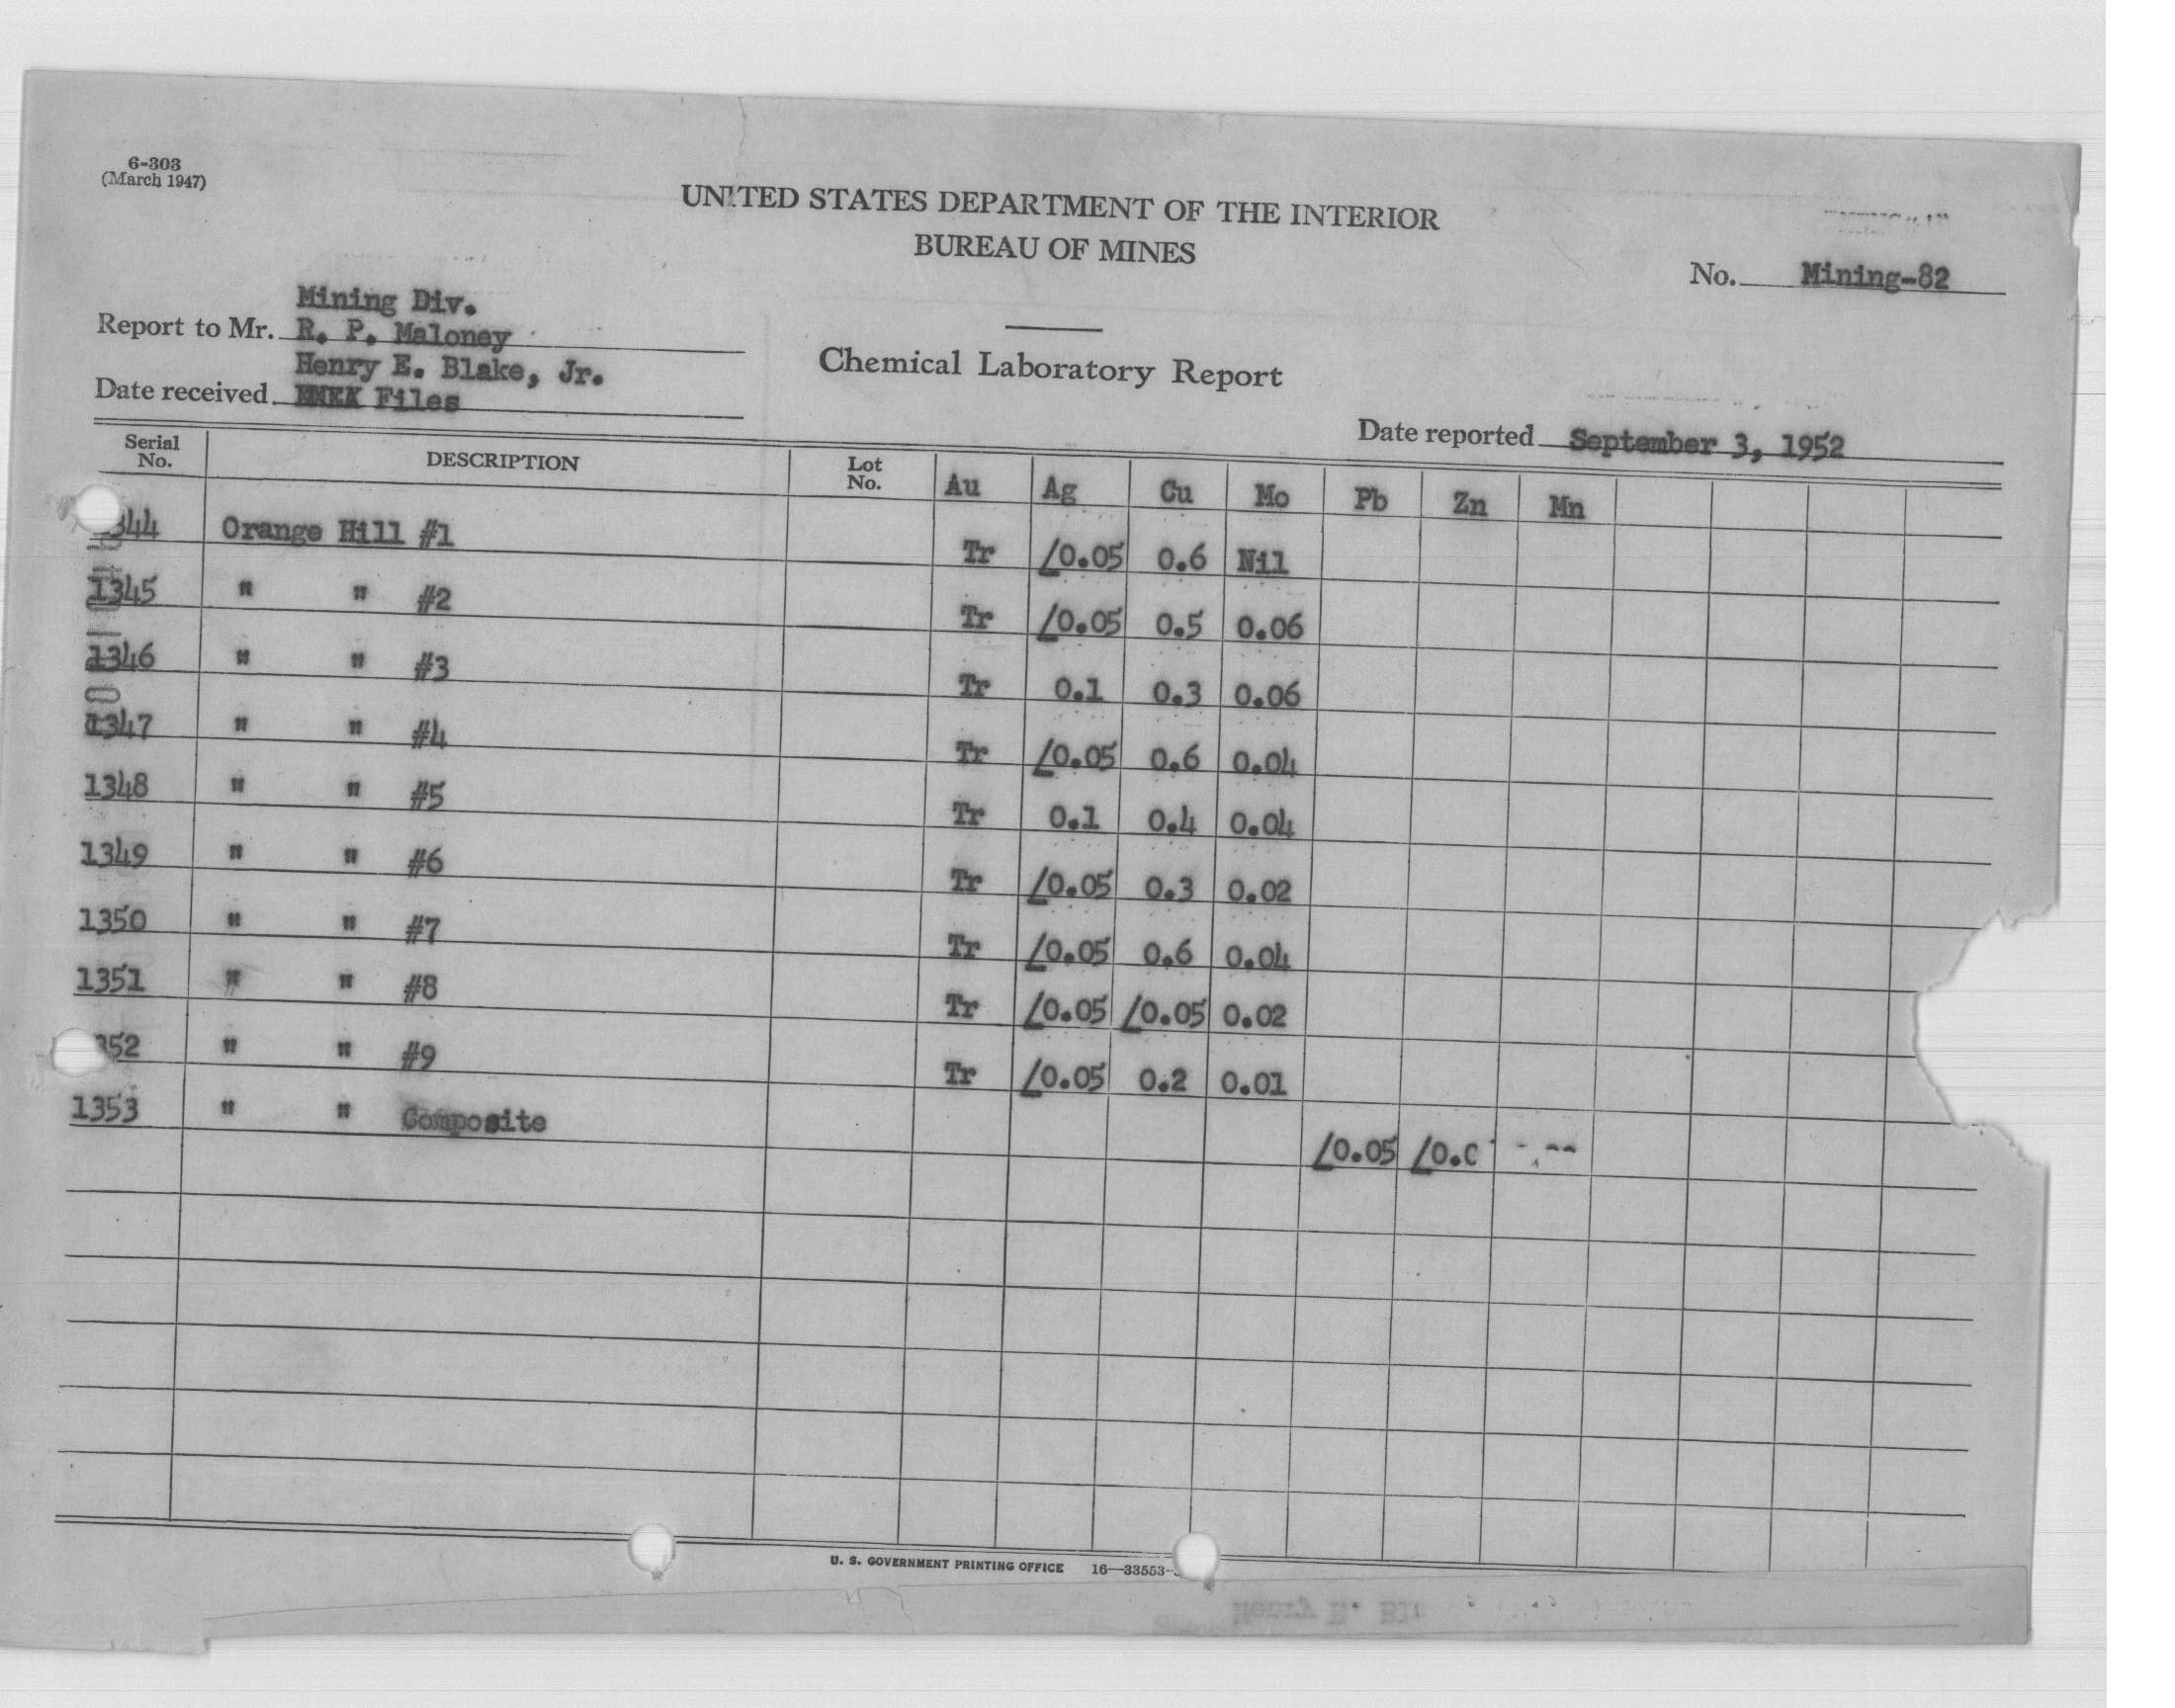 6-303
(March 1947)
UNITED STATES DEPARTMENT OF THE INTERIOR
BUREAU OF MINES
No. Mining-82
Mining Div.
Report to Mr. R. P. Maloney
Henry E. Blake, Jr.
Date received Files
Chemical Laboratory Report
Date reported September 3, 1952
Serial No. DESCRIPTION Lot No. Au Ag Cu Mo Pb Zn Mn
344 Orange Hill #1 Tr /0.05 0.6 Nil
1345 " " #2 Tr /0.05 0.5 0.06
1346 " " #3 Tr 0.1 0.3 0.06
1347 " " #4 Tr /0.05 0.6 0.04
1348 " " #5 Tr 0.1 0.4 0.04
1349 " " #6 Tr /0.05 0.3 0.02
1350 " " #7 Tr /0.05 0.6 0.04
1351 " " #8 Tr /0.05 /0.05 0.02
352 " " #9 Tr /0.05 0.2 0.01
1353 " " Composite /0.05 /0.0
U. S. GOVERNMENT PRINTING OFFICE 16—33553-